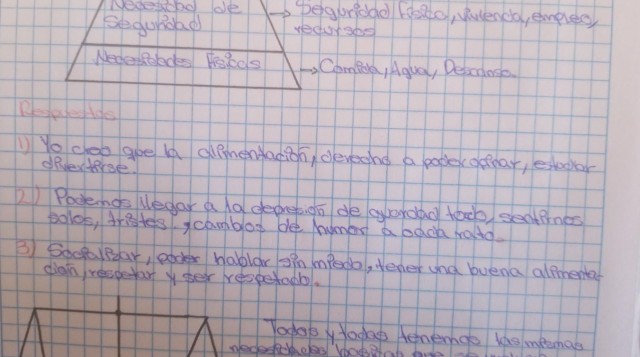 Necesidad de → Seguridad Física, vivienda, empleo,
Seguridad recursos
Necesidades Físicas → Comida, Agua, Descanso.
Respuestas
1) Yo creo que la alimentación, derecho a poder opinar, estudiar
divertirse.
2) Podemos llegar a la depresión de guardad todo, sentirnos
solos, tristes, y cambios de humor a cada rato.
3) Socializar, poder hablar sin miedo, tener una buena alimenta
ción, respetar y ser respetado.
Todos y todas tenemos las mismas
necesidades